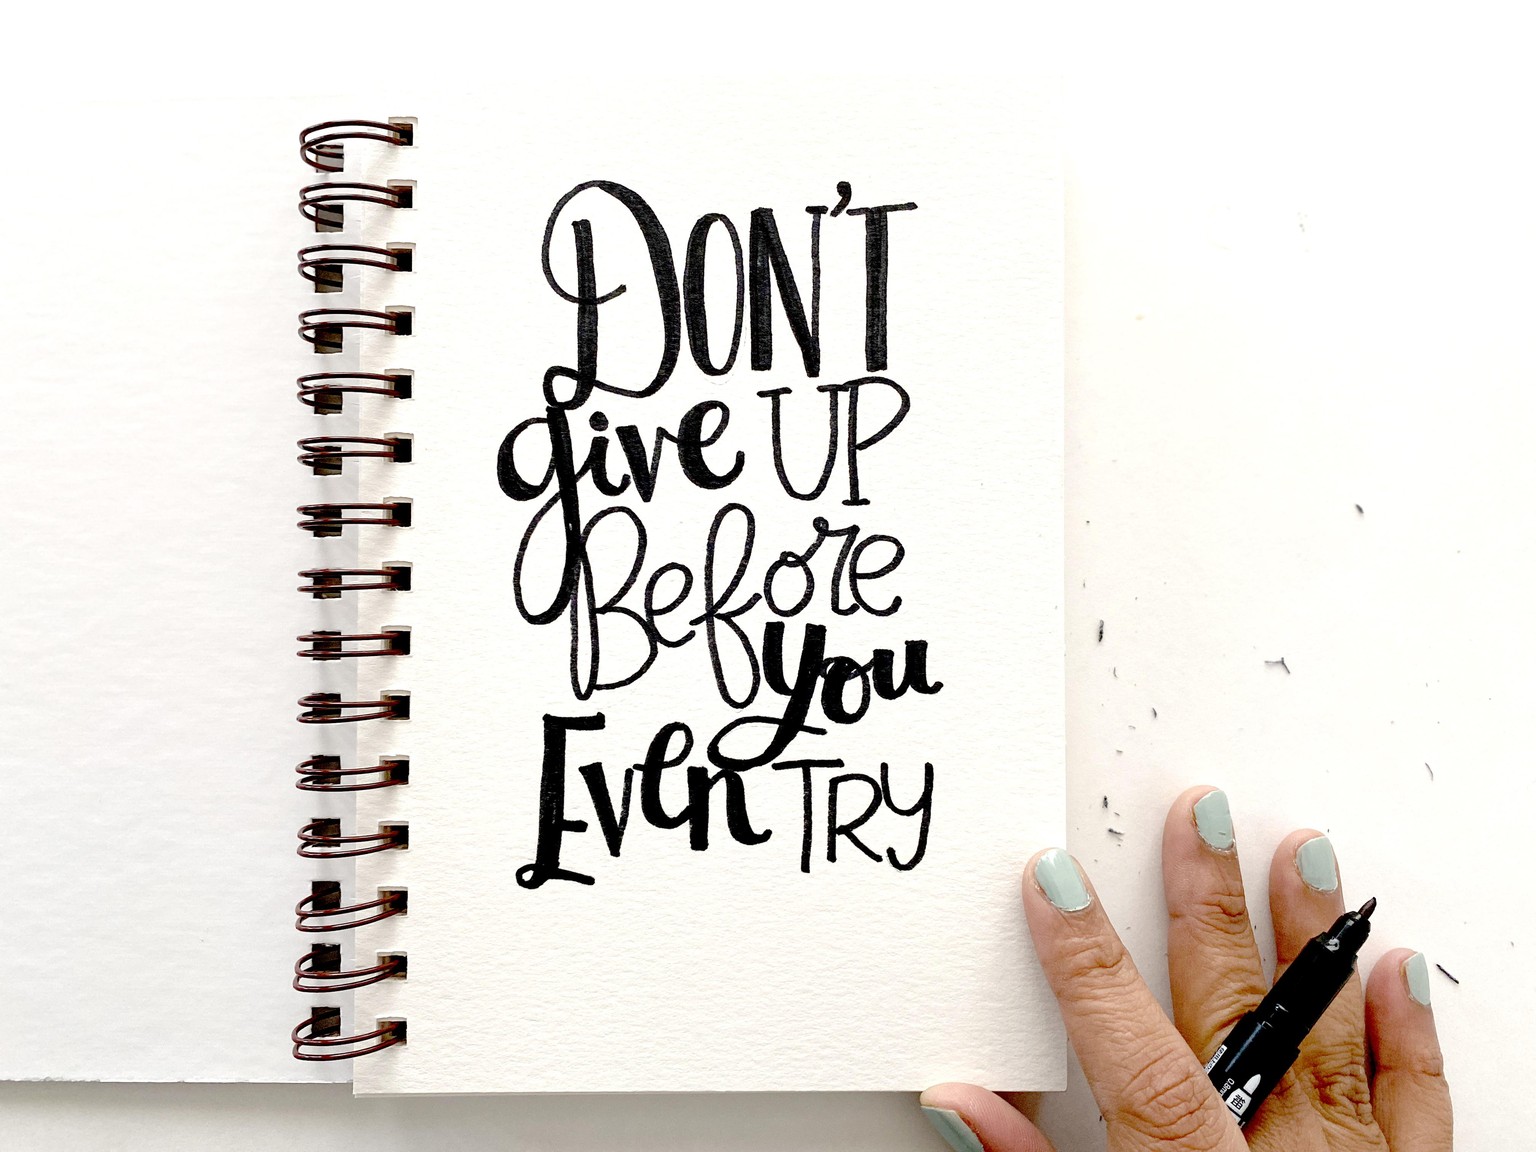 DON'T
give UP
Before
you
Even TRY